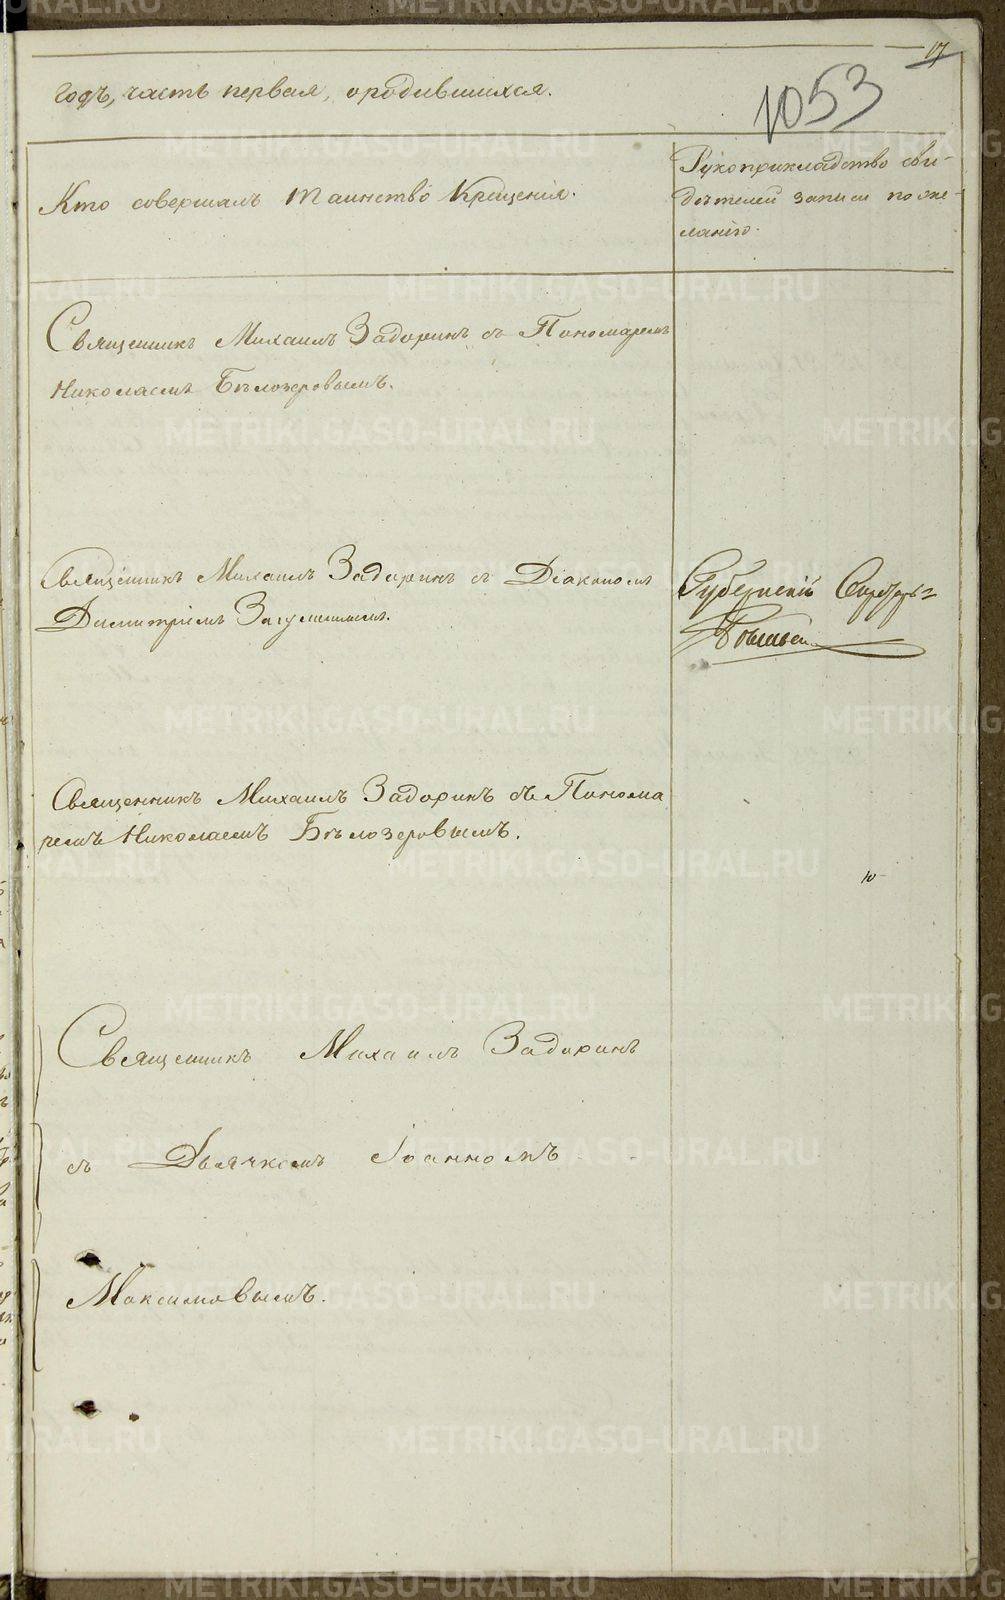 17
1053
годъ, часть первая, о родившихся.
Кто совершалъ таинство Крещенія.
Рукоприкладство сви-
дѣтелей записи по же-
ланію.
Священникъ Михаилъ Задоринъ съ Пономаремъ
Николаемъ Бѣлозеровымъ.
Священникъ Михаилъ Задоринъ съ Діакономъ
Димитріемъ
Губернскій Секретарь
Священникъ Михаилъ Задоринъ съ Понома
ремъ Николаемъ Бѣлозеровымъ.
Священникъ Михаилъ Задоринъ
съ Дьячкомъ Іоанномъ
Максимовымъ.
METRIKI.GASO-URAL.RU